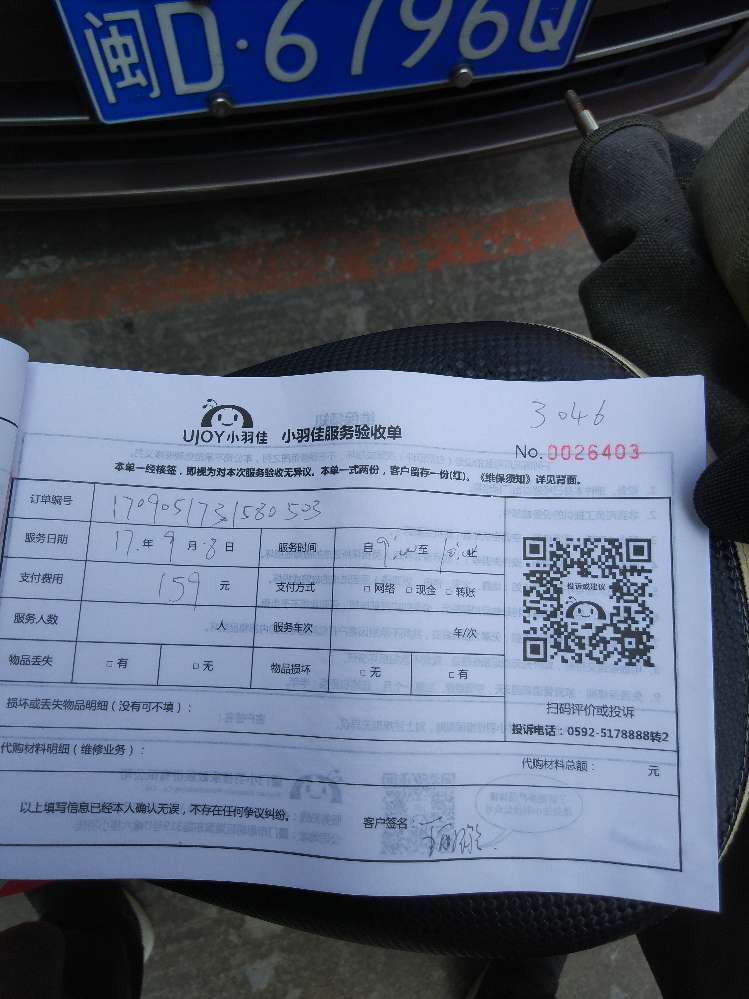 闽D·6796Q
3046
UJOY小羽佳 小羽佳服务验收单
No.0026403
本单一经核签，即视为对本次服务验收无异议。本单一式两份，客户留存一份(红)。《维保须知》详见背面。
订单编号 1709051731580503
服务日期 17年9月8日 服务时间 自9:00至
支付费用 159元 支付方式 □网络 □现金 □转账
服务人数 人 服务年次 年/次
物品丢失 □有 □无 物品损坏 □无 □有
投诉或建议
扫码评价或投诉
投诉电话：0592-5178888转2
损坏或丢失物品明细（没有可不填）：
代购材料明细（维修业务）： 代购材料总额： 元
以上填写信息已经本人确认无误，不存在任何争议纠纷。 客户签名：